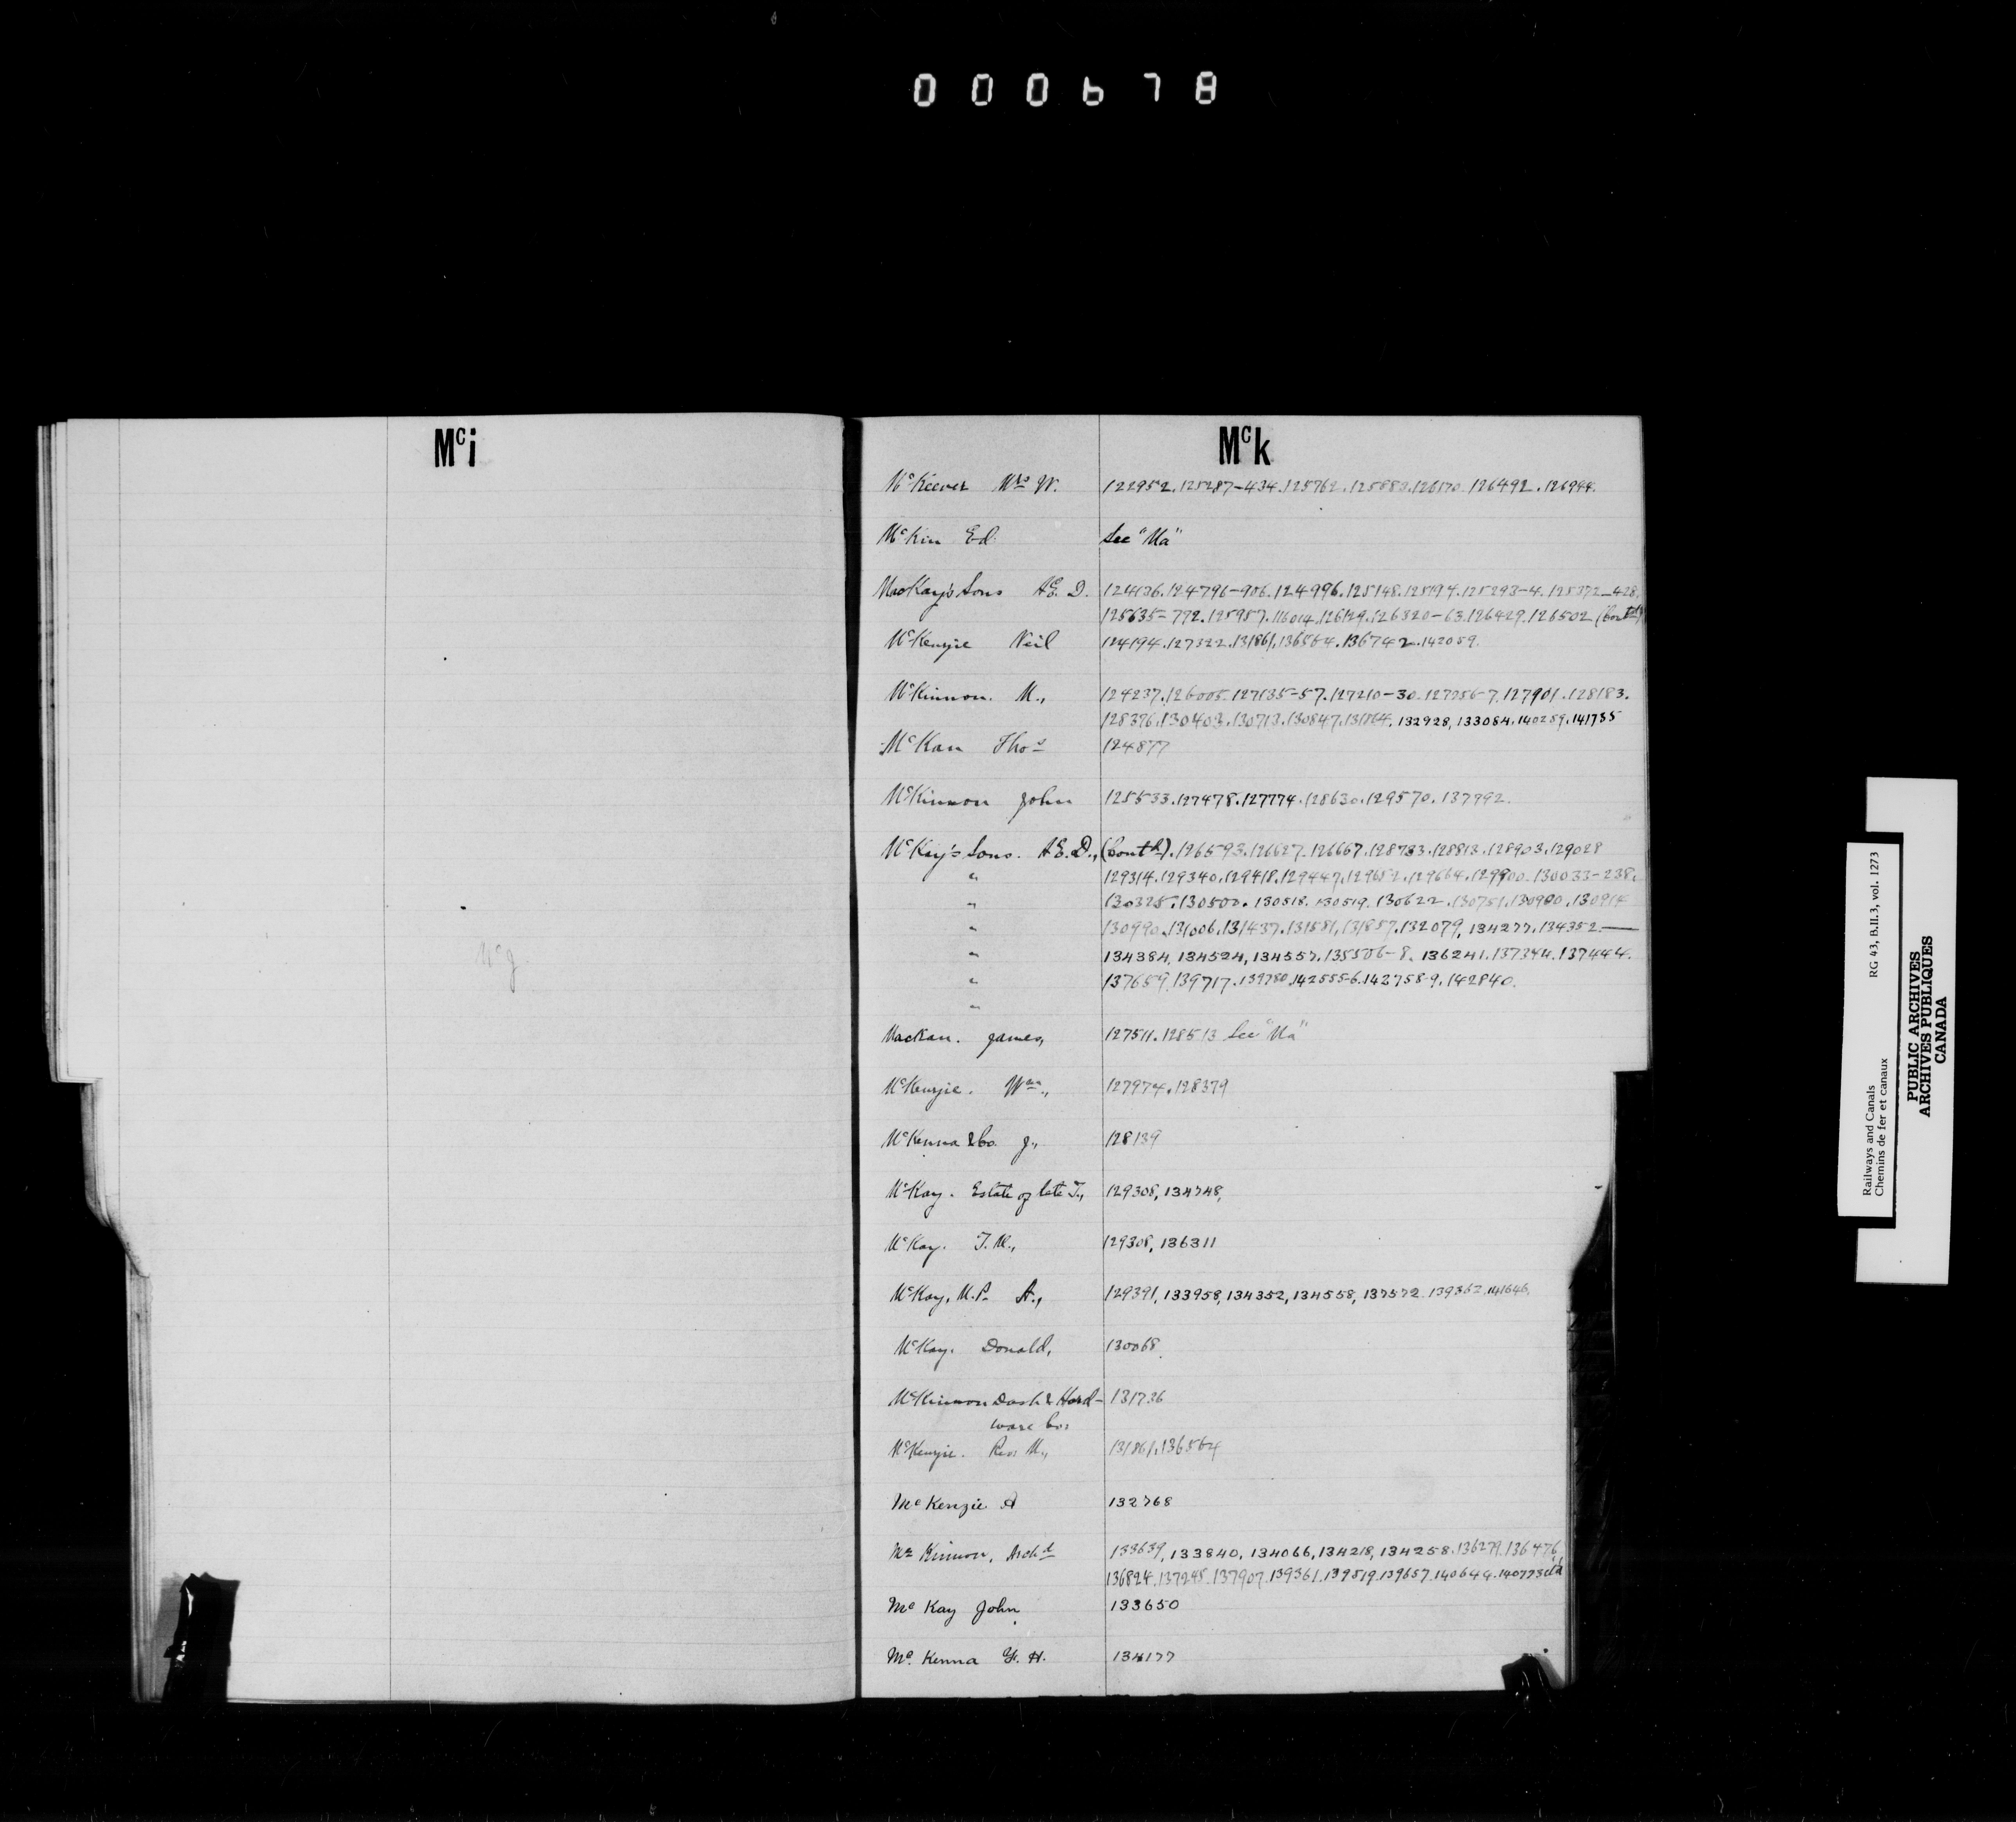 000678
Mci
Mcg
Mck
McKeever Mrs W. 122952.125287-434.125762.125882.126170.126492.126944.
McKim Ed. See "Ma"
MacKay's Sons A.E.D. 124136.124796-906.124996.125148.125194.125293-4.125372-428.
125635-792.125957.116014.126129.126320-63.126429.126502 (Contd)
McKenzie Neil 124194.127322.131861.136564.136742.142059.
McKinnon. M., 124237.126005.127135-57.127210-30.127256-7.127901.128183.
128396.130403.130713.130847.131864.132928,133084.140289.141735
McKan Thos 124877
McKinnon John 125533.127478.127774.128630.129570.137992.
McKay's Sons. A.E.D., (Contd).126593.126627.126667.128733.128813.128903.129028
" 129314.129340.129418.129447.129652.129664.129900.130033-238.
" 130325.130500.130518.130519.130622.130751.130900.130914
" 130990.131006.131437.131581,131857.132079,134277.134352.—
" 134384,134524,134557.135506-8.136241.137344.137444.
" 137659.139717.139780.142555-6.142758-9.142840.
"
MacKan. James, 127511.128513 See "Ma"
McKenzie. Wm., 127974.128379
McKenna & Co. J., 128139
McKay. Estate of late T., 129308,134748,
McKay. T.M., 129308,136311
McKay, M.P. A., 129391,133958,134352,134558,137572.139362.141646.
McKay. Donald, 130068.
McKinnon Dash & Hard- 131736
ware Co:
McKenzie. Rev: M., 131861.136564
McKenzie A 132768
McKinnon, Archd 133639,133840,134066,134218,134258.136279.136476
136824.137248.137907.139361.139519.139657.140644.140773
McKay John. 133650
McKenna F. H. 134177
Railways and Canals RG 43, B.II.3, vol. 1273
Chemins de fer et canaux
PUBLIC ARCHIVES
ARCHIVES PUBLIQUES
CANADA